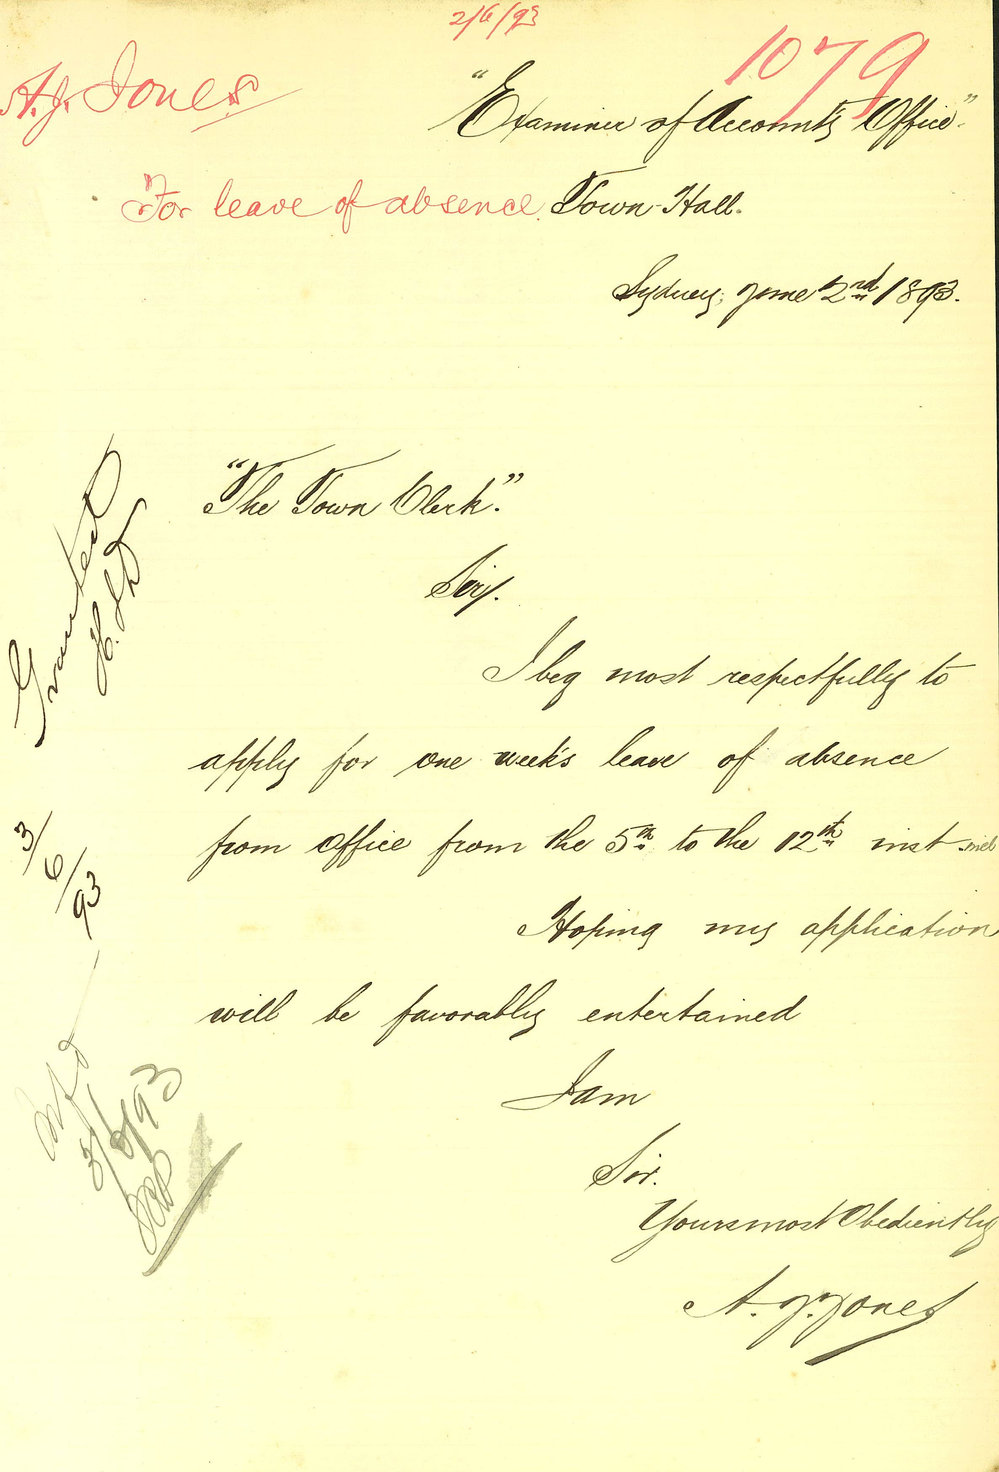 2/6/93
1079
A.J. Jones
"Examiner of Account's Office"
For leave of absence
Town Hall.
Sydney, June 2nd 1893.
"The Town Clerk."
Sir,
I beg most respectfully to
apply for one week's leave of absence
from office from the 5th to the 12th inst
Hoping my application
will be favorably entertained
I am
Sir.
Yours most Obediently
A. J. Jones
Granted
3/6/93
3/6/93